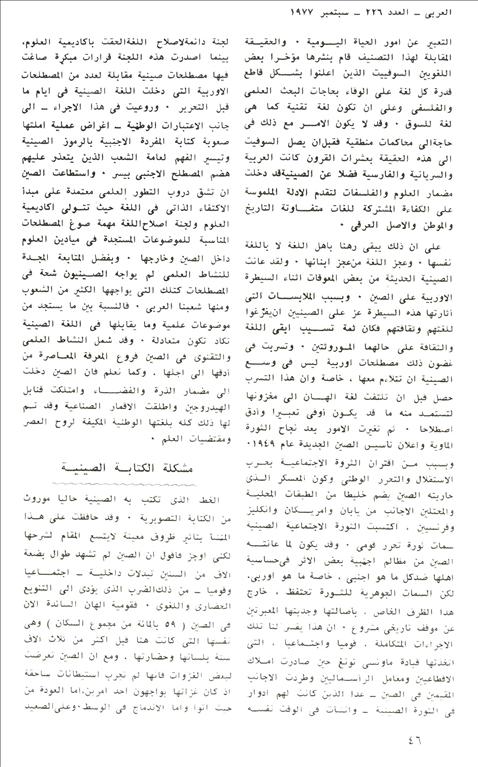 العربي - العدد ٢٢٦ - سبتمبر ١٩٧٧
التعبير عن امور الحياة اليومية ٠ والحقيقة
المقابلة لهذا التصنيف قام بنشرها مؤخرا بعض
اللغويين السوفييت الذين اعلنوا بشكل قاطع
قدرة كل لغة على الوفاء بحاجات البحث العلمي
والفلسفي وعلى ان تكون لغة تقنية كما هي
لغة للسوق ٠ وقد لا يكون الامر مع ذلك في
حاجةالى محاكمات منطقية فقبل ان يصل السوفيت
الى هذه الحقيقة بعشرات القرون كانت العربية
والسريانية والفارسية فضلا عن الصينيةقد دخلت
مضمار العلوم والفلسفات لتقدم الادلة الملموسة
على الكفاءة المشتركة للغات متفاوتة التاريخ
والموطن والاصل العرقي ٠
على ان ذلك يبقى رهنا باهل اللغة لا باللغة
نفسها ٠ وعجز اللغة من عجز ابنائها ٠ ولقد عانت
الصينية الحديثة من بعض المعوقات اثناء السيطرة
الاوربية على الصين ٠ وبسبب الملابسات التي
أثارتها هذه السيطرة عز على الصينيين ان يفرغوا
للغتهم وثقافتهم فكان ثمة تسيب ابقى اللغة
والثقافة على حالهما الموروثتين ٠ وتسربت في
غضون ذلك مصطلحات اوربية ليس في وسع
الصينية ان تتلاءم معها ، خاصة وان هذا التسرب
حصل قبل ان تلتفت لغة الهان الى مخزونها
لتستمد منه ما قد يكون أوفى تعبيرا وأدق
اصطلاحا ٠ ثم تغيرت الامور بعد نجاح الثورة
الماوية واعلان تأسيس الصين الجديدة عام ١٩٤٩٠
وبسبب من اقتران الثورة الاجتماعية بحرب
الاستقلال والتحرر الوطني وكون المعسكر الذي
حاربته الصين يضم خليطا من الطبقات المحلية
والمحتلين الاجانب من يابان وامريكان وانكليز
وفرنسيين ، اكتسبت الثورة الاجتماعية الصينية
سمات ثورة تحرر قومي ٠ وقد يكون لما عانته
الصين من مظالم اجنبية بعض الاثر في حساسية
اهلها ضد كل ما هو اجنبي ، خاصة ما هو اوربي.
لكن السمات الجوهرية للثورة تحتفظ ، خارج
هذا الظرف الخاص ، بأصالتها وجديتها المعبرتين
عن موقف تاريخي مشروع ٠ ان هذا يفسر لنا تلك
الاجراءات المتكاملة ، قوميا واجتماعيا ، التي
اتخذتها قيادة ماوتسي تونغ حين صادرت املاك
الاقطاعيين ومعامل الرأسماليين وطردت الاجانب
المقيمين في الصين - عدا الذين كانت لهم ادوار
في الثورة الصينية - وانشأت في الوقت نفسه
لجنة دائمة لاصلاح اللغة الحقت باكاديمية العلوم،
بينما اصدرت هذه اللجنة قرارات مبكرة صاغت
فيها مصطلحات صينية مقابلة لعدد من المصطلحات
الاوربية التي دخلت اللغة الصينية في ايام ما
قبل التحرير ٠ وروعيت في هذا الاجراء - الى
جانب الاعتبارات الوطنية - اغراض عملية املتها
صعوبة كتابة المفردة الاجنبية بالرموز الصينية
وتيسير الفهم لعامة الشعب الذين يتعذر عليهم
هضم المصطلح الاجنبي بيسر ٠ واستطاعت الصين
ان تشق دروب التطور العلمي معتمدة على مبدأ
الاكتفاء الذاتي في اللغة حيث تتولى اكاديمية
العلوم ولجنة اصلاح اللغة مهمة صوغ المصطلحات
المناسبة للموضوعات المستجدة في ميادين العلوم
داخل الصين وخارجها ٠ وبفضل المتابعة المجدة
للنشاط العلمي لم يواجه الصينيون شحة في
المصطلحات كتلك التي يواجهها الكثير من الشعوب
ومنها شعبنا العربي ٠ فالنسبة بين ما يستجد من
موضوعات علمية وما يقابلها في اللغة الصينية
تكاد تكون متعادلة ٠ وقد شمل النشاط العلمي
والتقنوي في الصين فروع المعرفة المعاصرة من
أدقها الى اجلها ، وكما نعلم فان الصين دخلت
الى مضمار الذرة والفضاء ، وامتلكت قنابل
الهيدروجين واطلقت الاقمار الصناعية وقد تم
لها ذلك كله بلغتها الوطنية المكيفة لروح العصر
ومقتضيات العلم ٠
مشكلة الكتابة الصينية
الخط الذي تكتب به الصينية حاليا موروث
من الكتابة التصويرية ٠ وقد حافظت على هذا
المنشأ بتاثير ظروف معينة لايتسع المقام لشرحها
لكني اوجز فاقول ان الصين لم تشهد طوال بضعة
الاف من السنين تبدلات داخلية - اجتماعيا
وقوميا - من ذلك الضرب الذي يؤدي الى التنويع
الحضاري واللغوي ٠ فقومية الهان السائدة الان
في الصين ( ٩٥ بالمائة من مجموع السكان ) وهي
نفسها التي كانت هنا قبل اكثر من ثلاث الاف
سنة بلسانها وحضارتها ، ومع ان الصين تعرضت
لبعض الغزوات فانها لم تجرب استيطانات ساحقة
اذ كان غزاتها يواجهون احد امرين،اما العودة من
حيث اتوا،واما الاندماج في الوسط٠وعلى الصعيد
٤٦